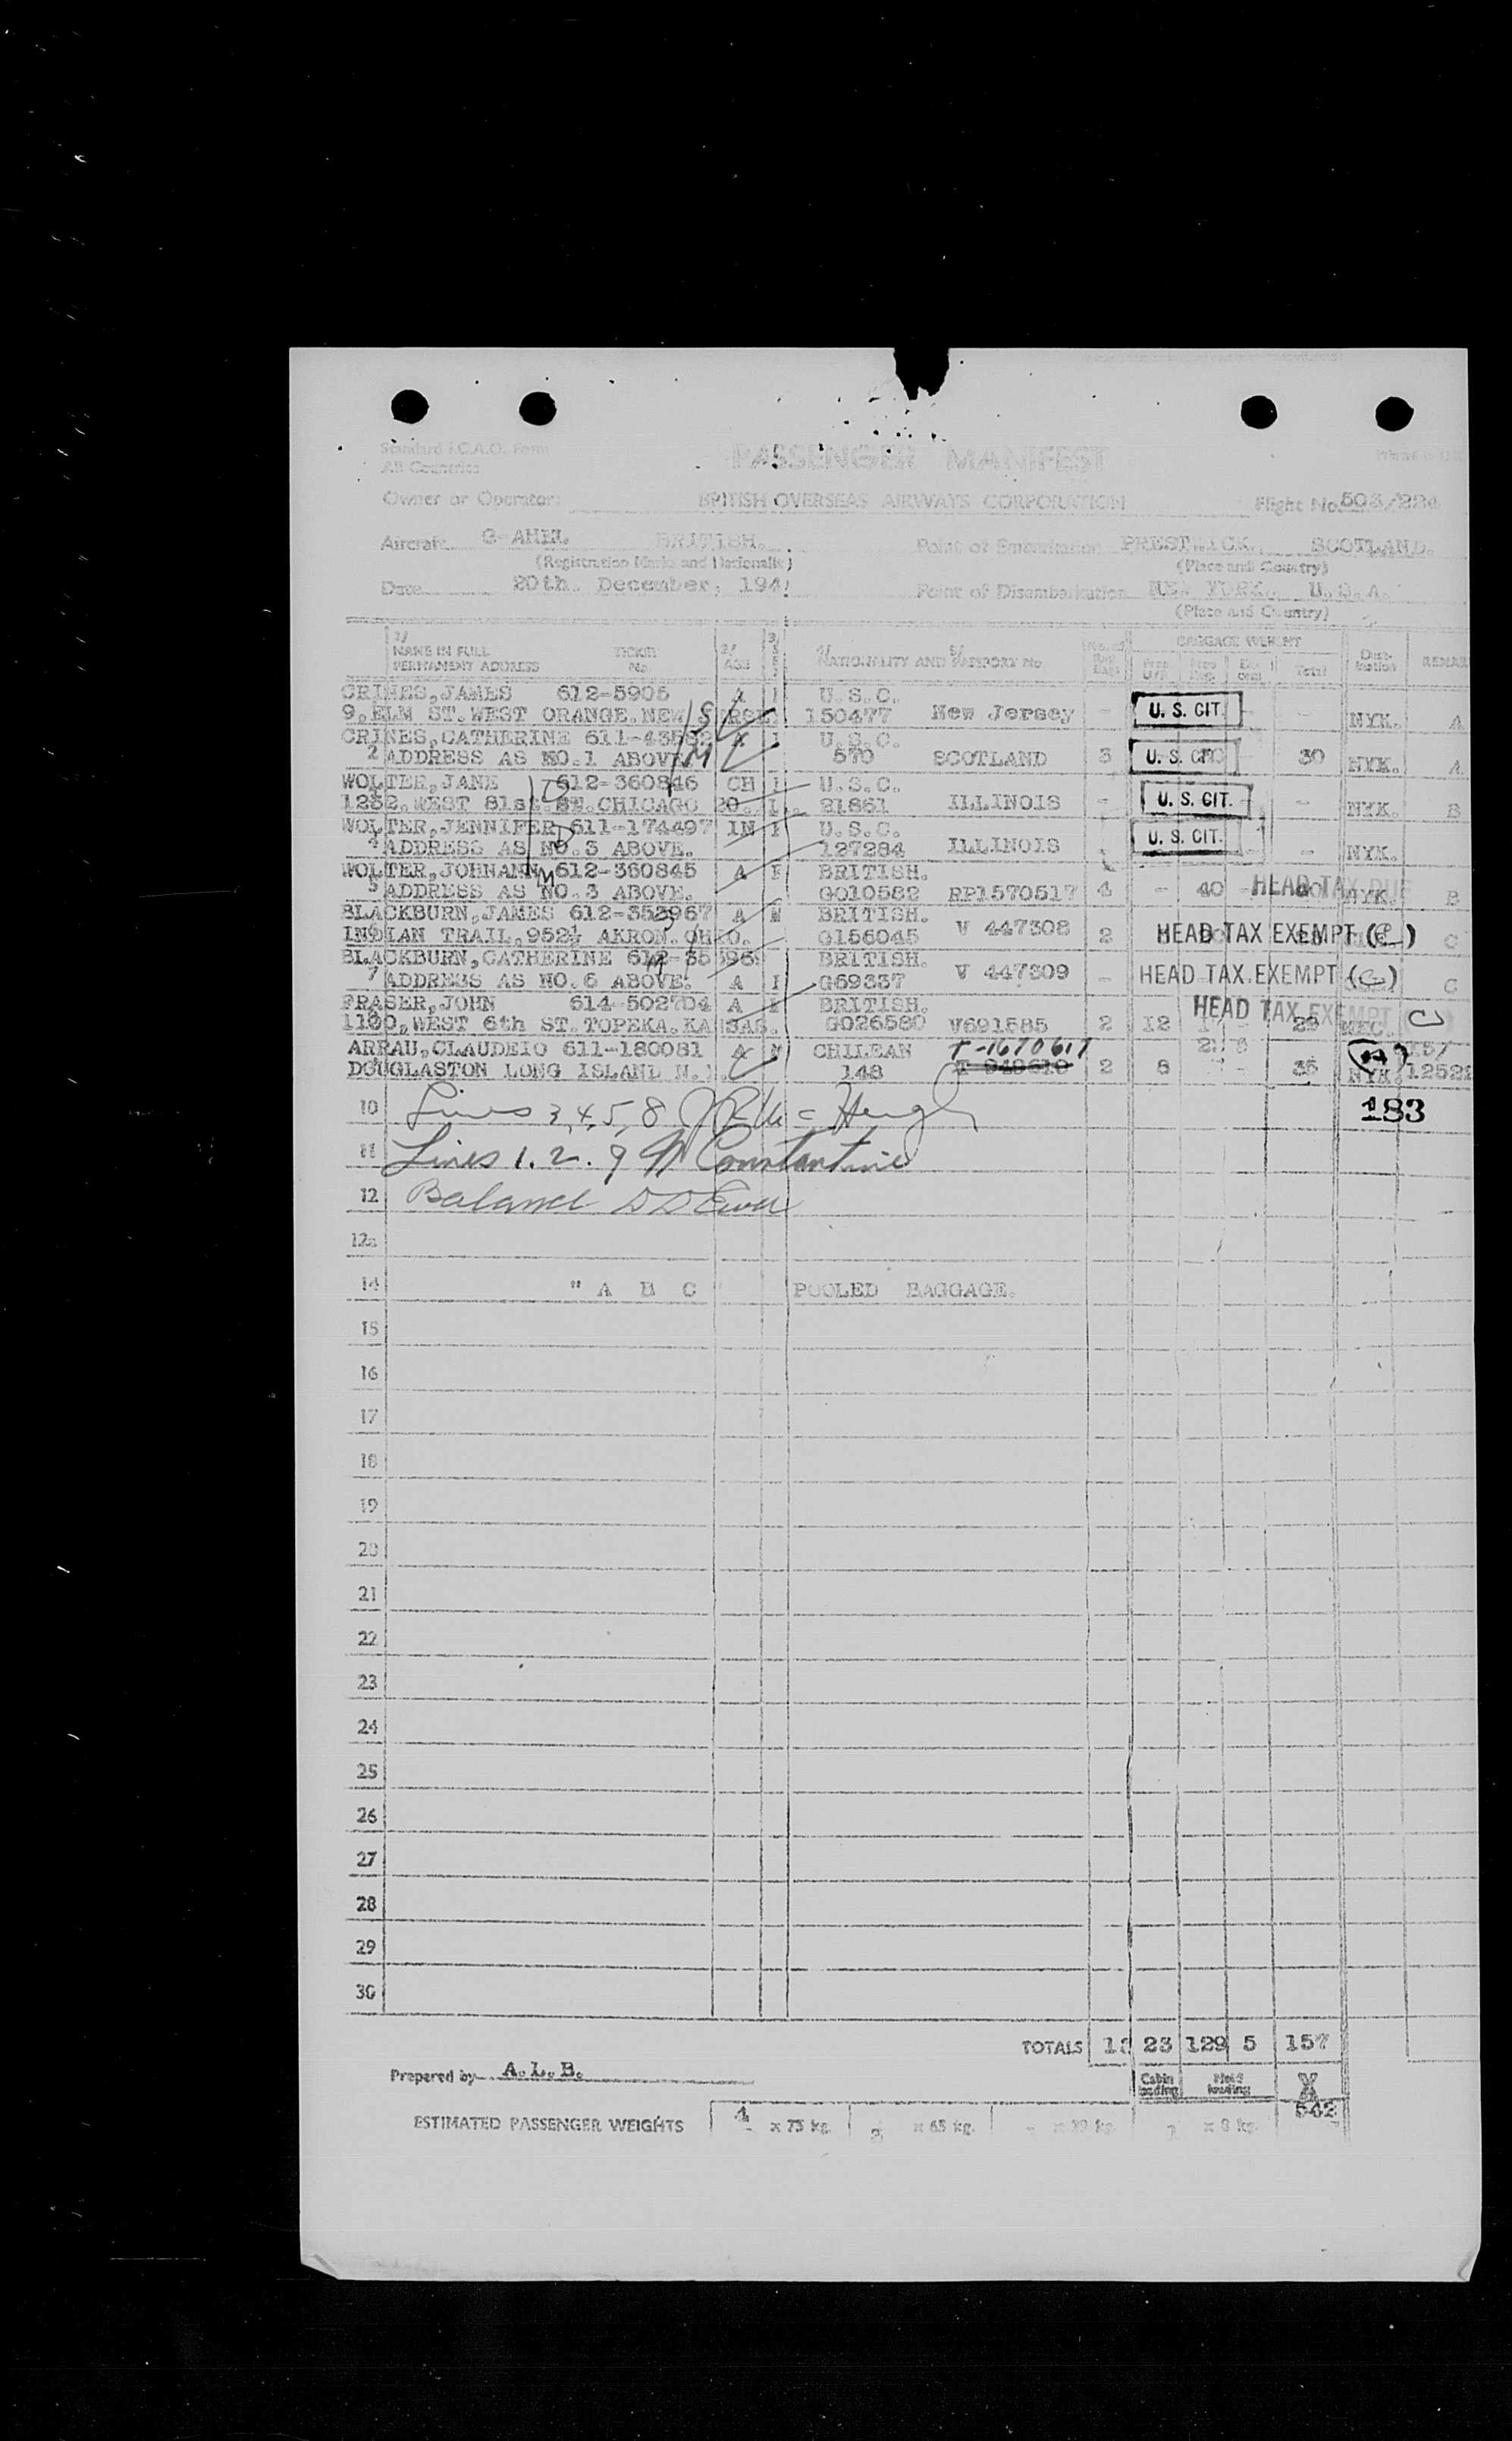 Standard I.C.A.O. Form
All Countries
PASSENGER MANIFEST
Owner or Operator: BRITISH OVERSEAS AIRWAYS CORPORATION Flight No.
Aircraft BRITISH. Point of Embarkation PRESTWICK. SCOTLAND.
(Registration Marks and Nationality) (Place and Country)
Date 20th. December, 194 Point of Disembarkation NEW YORK. U.S.A.
(Place and Country)
1/ 2/ 3/ 4/ 5/ BAGGAGE WEIGHT
NAME IN FULL TICKET No. AGE NATIONALITY AND PASSPORT No. Total REMAR
PERMANENT ADDRESS
CRINES,JAMES 612-5905 A U.S.C.
9,ELM ST.WEST ORANGE.NEW 150477 New Jersey - U. S. CIT. - NYK. A
CRINES,CATHERINE A U.S.C.
2 ADDRESS AS NO.1 ABOVE. 570 SCOTLAND 3 U. S. 30 NYK. A
WOLTER,JANE 612-360846 CH U.S.C.
ST.CHICAGO 20. 21861 ILLINOIS - U. S. CIT. - NYK. B
WOLTER,JENNIFER 611-174497 IN U.S.C.
4 ADDRESS AS NO.3 ABOVE. 127284 ILLINOIS U. S. CIT. - NYK.
WOLTER,JOHNANN 612-360845 A BRITISH.
5 ADDRESS AS NO.3 ABOVE. G010582 RP1570517 4 - 40 - HEAD TAX DUE NYK. B
BLACKBURN,JAMES A M BRITISH.
INDIAN TRAIL,952½ AKRON.OHIO. G156045 V 447308 2 HEAD TAX EXEMPT (C) C
BLACKBURN,CATHERINE BRITISH.
7 ADDRESS AS NO.6 ABOVE. A G69337 V 447309 - HEAD TAX EXEMPT (C) C
FRASER,JOHN 614-502704 A BRITISH. HEAD TAX EXEMPT
WEST 6th ST.TOPEKA.KANSAS. G026580 V691585 2 12 C
ARRAU,CLAUDEIO 611-180081 A M CHILEAN T-1670617
DOUGLASTON LONG ISLAND N.Y. 148 2 8 - 35 NYK.
10 Lines 3,4,5,8 183
11 Lines 1. 2. 9 Constantine
12 Balance
12a
14 "A B C" POOLED BAGGAGE.
15
16
17
18
19
20
21
22
23
24
25
26
27
28
29
30
TOTALS 23 129 5 157
Prepared by A.L.B. Cabin loading Hold loading
ESTIMATED PASSENGER WEIGHTS 4 x 75 kg. 2 x 65 kg. x 8 kg. 542